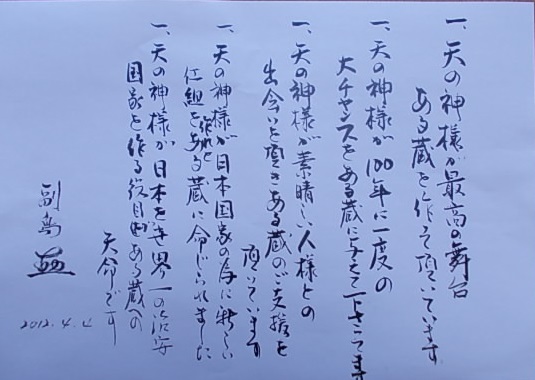 一、天の神様が最高の舞台
ある蔵を作って頂いています
一、天の神様が100年に一度の
大チャンスをある蔵に与えて下さってます
一、天の神様が素晴しい人様との
出会いを頂きある蔵のご支援を
頂いています
一、天の神様が日本国家の為に新しい
仕組を作れとある蔵に命じられました
一、天の神様が日本を世界一の治安
国家を作る役目がある蔵への
天命です
副島
2012.4.4